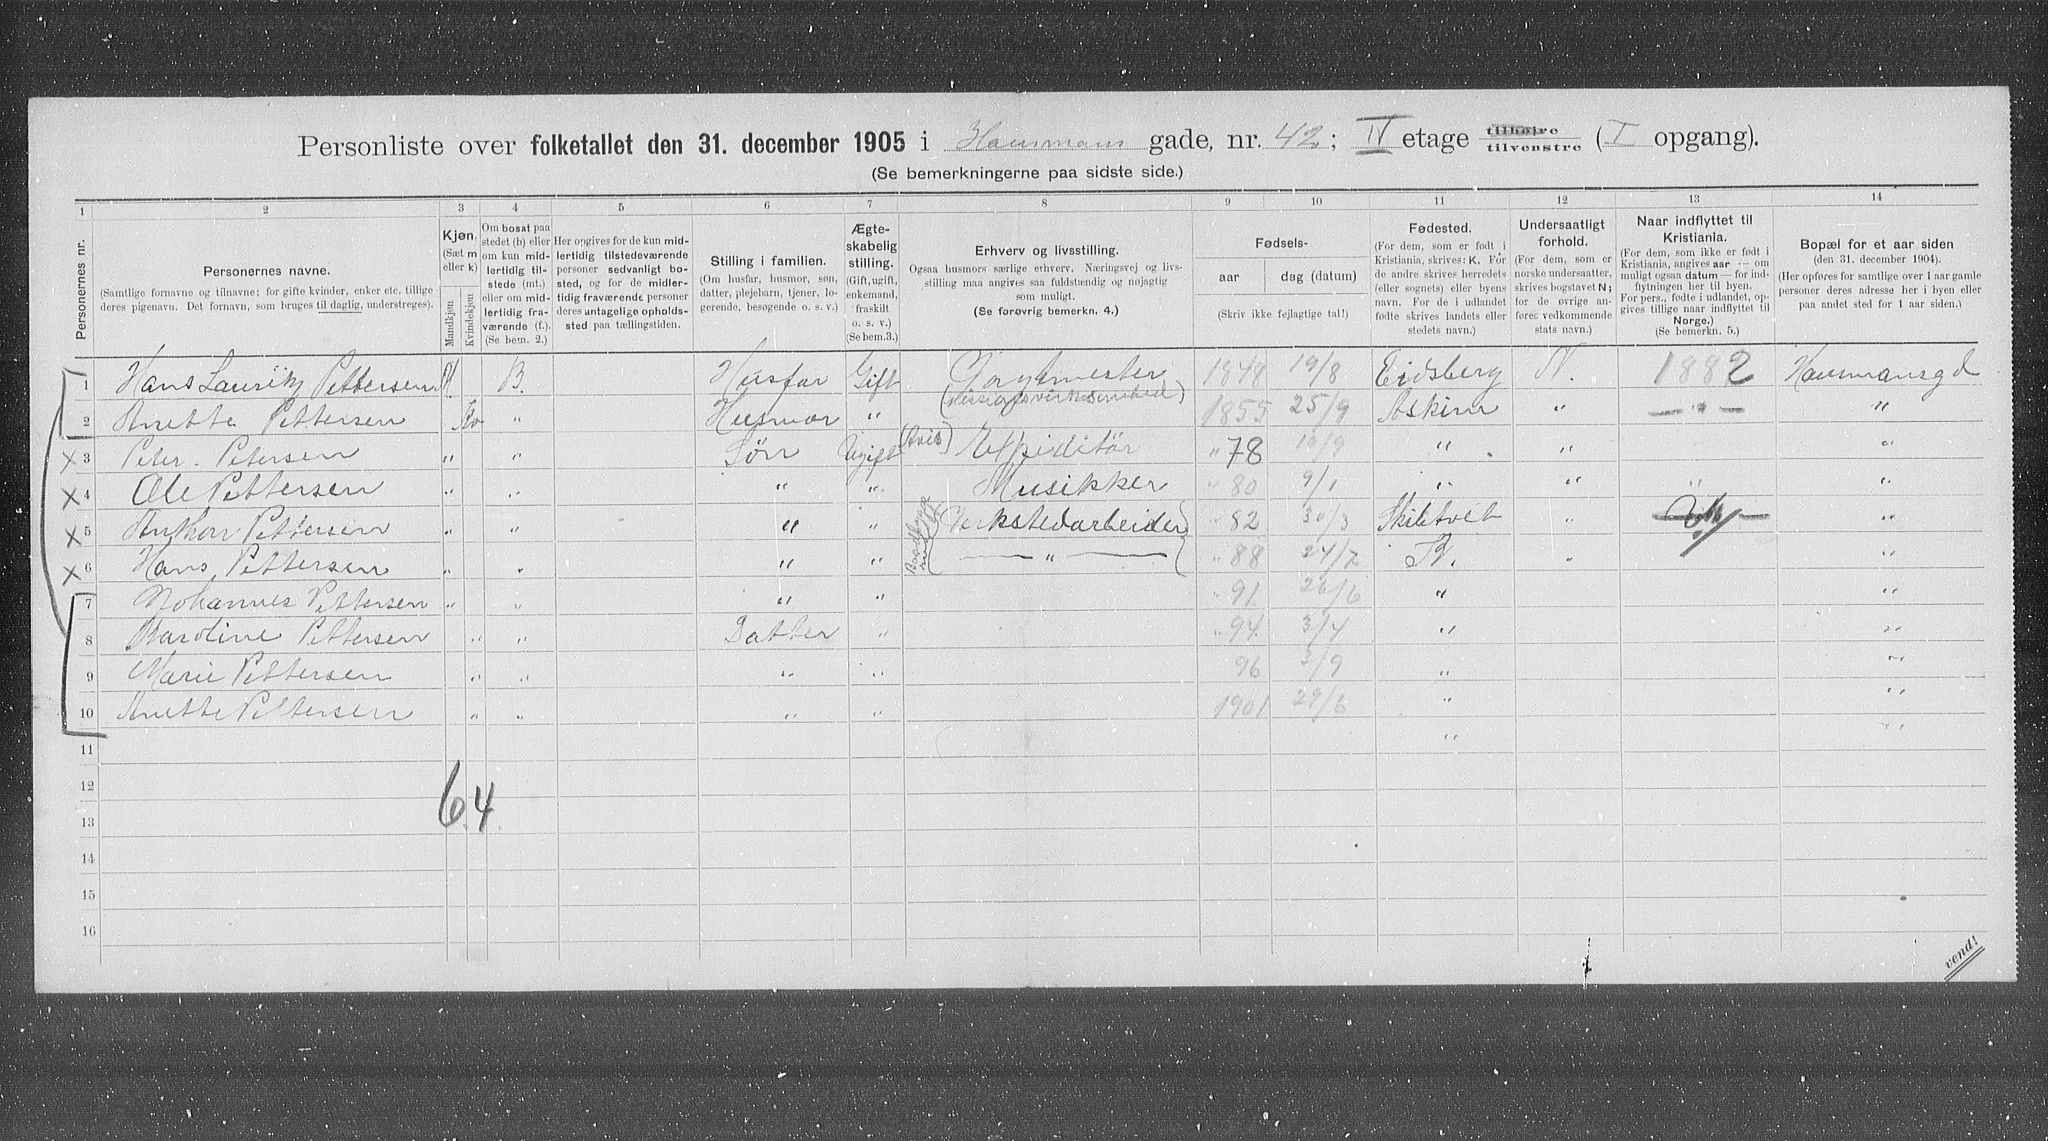 Personliste over folketallet den 31. december 1905 i Hausmans gade, nr. 42; IV etage tilhøire tilvenstre (I opgang).
(Se bemerkningerne paa sidste side.)
1 2 3 4 5 6 7 8 9 10 11 12 13 14
Personernes nr.
Personernes navne.
(Samtlige fornavne og tilnavne; for gifte kvinder, enker etc. tillige
deres pigenavn. Det fornavn, som bruges til daglig, understreges).
Kjøn.
(Sæt m
eller k)
Mandkjøn
Kvindekjøn
Om bosat paa
stedet (b) eller
om kun mid-
lertidig til-
stede (mt.)
eller om mid-
lertidig fra-
værende (f.).
(Se bem. 2.)
Her opgives for de kun mid-
lertidig tilstedeværende
personer sedvanligt bo-
sted, og for de midler-
tidig fraværende personer
deres antagelige opholds-
sted paa tællingstiden.
Stilling i familien.
(Om husfar, husmor, søn,
datter, plejebarn, tjener, lo-
gerende, besøgende o. s. v.)
Ægte-
skabelig
stilling.
(Gift, ugift,
enkemand,
fraskilt
o. s. v.)
(Se bem.3.)
Erhverv og livsstilling.
Ogsaa husmors særlige erhverv. Næringsvej og livs-
stilling maa angives saa fuldstændig og nøjagtig
som muligt.
(Se forøvrig bemerkn. 4.)
Fødsels-
aar dag (datum)
(Skriv ikke fejlagtige tal!)
Fødested.
(For dem, som er født i
Kristiania, skrives: K. For
de andre skrives herredets
(eller sognets) eller byens
navn. For de i udlandet
fødte skrives landets eller
stedets navn.)
Undersaatligt
forhold.
(For dem, som er
norske undersaatter,
skrives bogstavet N;
for de øvrige an-
føres vedkommende
stats navn.)
Naar indflyttet til
Kristiania.
(For dem, som ikke er født i
Kristiania, angives aar — om
muligt ogsaa datum — for ind-
flytningen her til byen.
For pers., fødte i udlandet, op-
gives tillige naar indflyttet til
Norge.)
(Se bemerkn. 5.)
Bopæl for et aar siden
(den 31. december 1904).
(Her opføres for samtlige over 1 aar gamle
personer deres adresse her i byen eller
paa andet sted for 1 aar siden.)
1 Hans Lauritz Pettersen M. B. Husfar Gift 1848 19/8 Eidsberg N. 1882 Hausmansgd
2 Anette Pettersen Kv " Husmor " 1855 25/9 Askim " — " — "
x 3 Peter. Petersen " " Søn Ugift (Avis) Expeditør " 78 19/9 " " "
x 4 Ole Pettersen " " " " Musikker " 80 9/1 " " " "
x 5 Anthon Pettersen " " " " Verkstedarbeider " 82 30/3 Skibtvet " "
x 6 Hans Pettersen " " " " — " — " 88 24/2 K. " "
7 Johannes Pettersen " " " " " 91 26/6 " "
8 Karoline Pettersen " " Datter " " 94 3/4 " "
9 Marie Pettersen " " " " 96 3/9 " "
10 Anette Pettersen " " " " 1901 29/6 " "
11 " "
12
13
6. 4.
14
15
16
vend!